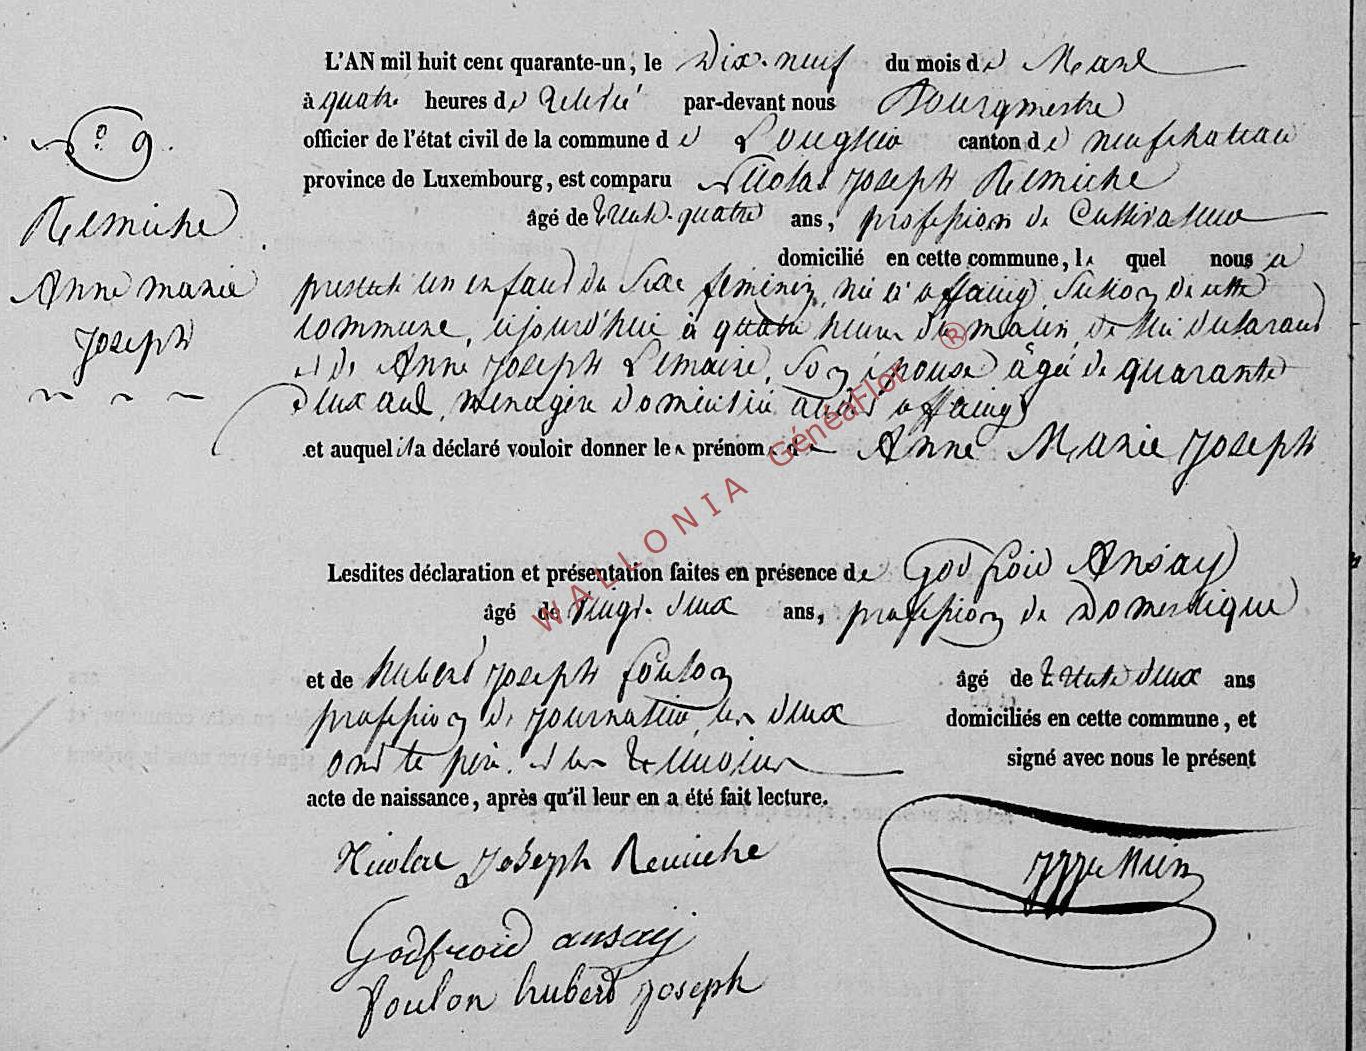 L'AN mil huit cent quarante-un, le Dix-neuf du mois de Mars
à quatre heures de relevé par-devant nous Bourgmestre
officier de l'état civil de la commune de Longlier canton de neufchateau
province de Luxembourg, est comparu Nicolas Joseph Remiche
âgé de trente-quatre ans, profession de Cultivateur
domicilié en cette commune, le quel nous a
presenté un enfant du Sexe féminin, né à offaing, Section de cette
commune, aujourd'hui à quatre heures du matin, de lui déclarant
et de Anne Joseph Lemaire, Son épouse âgée de quarante
deux ans, ménagère domiciliée audit offaing
et auquel il a déclaré vouloir donner les prénoms de Anne Marie Joseph
Lesdites déclaration et présentation faites en présence de Godfroid Ansay
âgé de vingt-deux ans, profession de Domestique
et de hubert Joseph foulon âgé de trente deux ans
profession de journalier les deux domiciliés en cette commune, et
ont le père et les témoins signé avec nous le présent
acte de naissance, après qu'il leur en a été fait lecture.
Nicolas Joseph Remiche
Godfroid ansay
foulon hubert joseph
No 9.
Remiche
Anne marie
Joseph
WALLONIA GénéaFlor ®